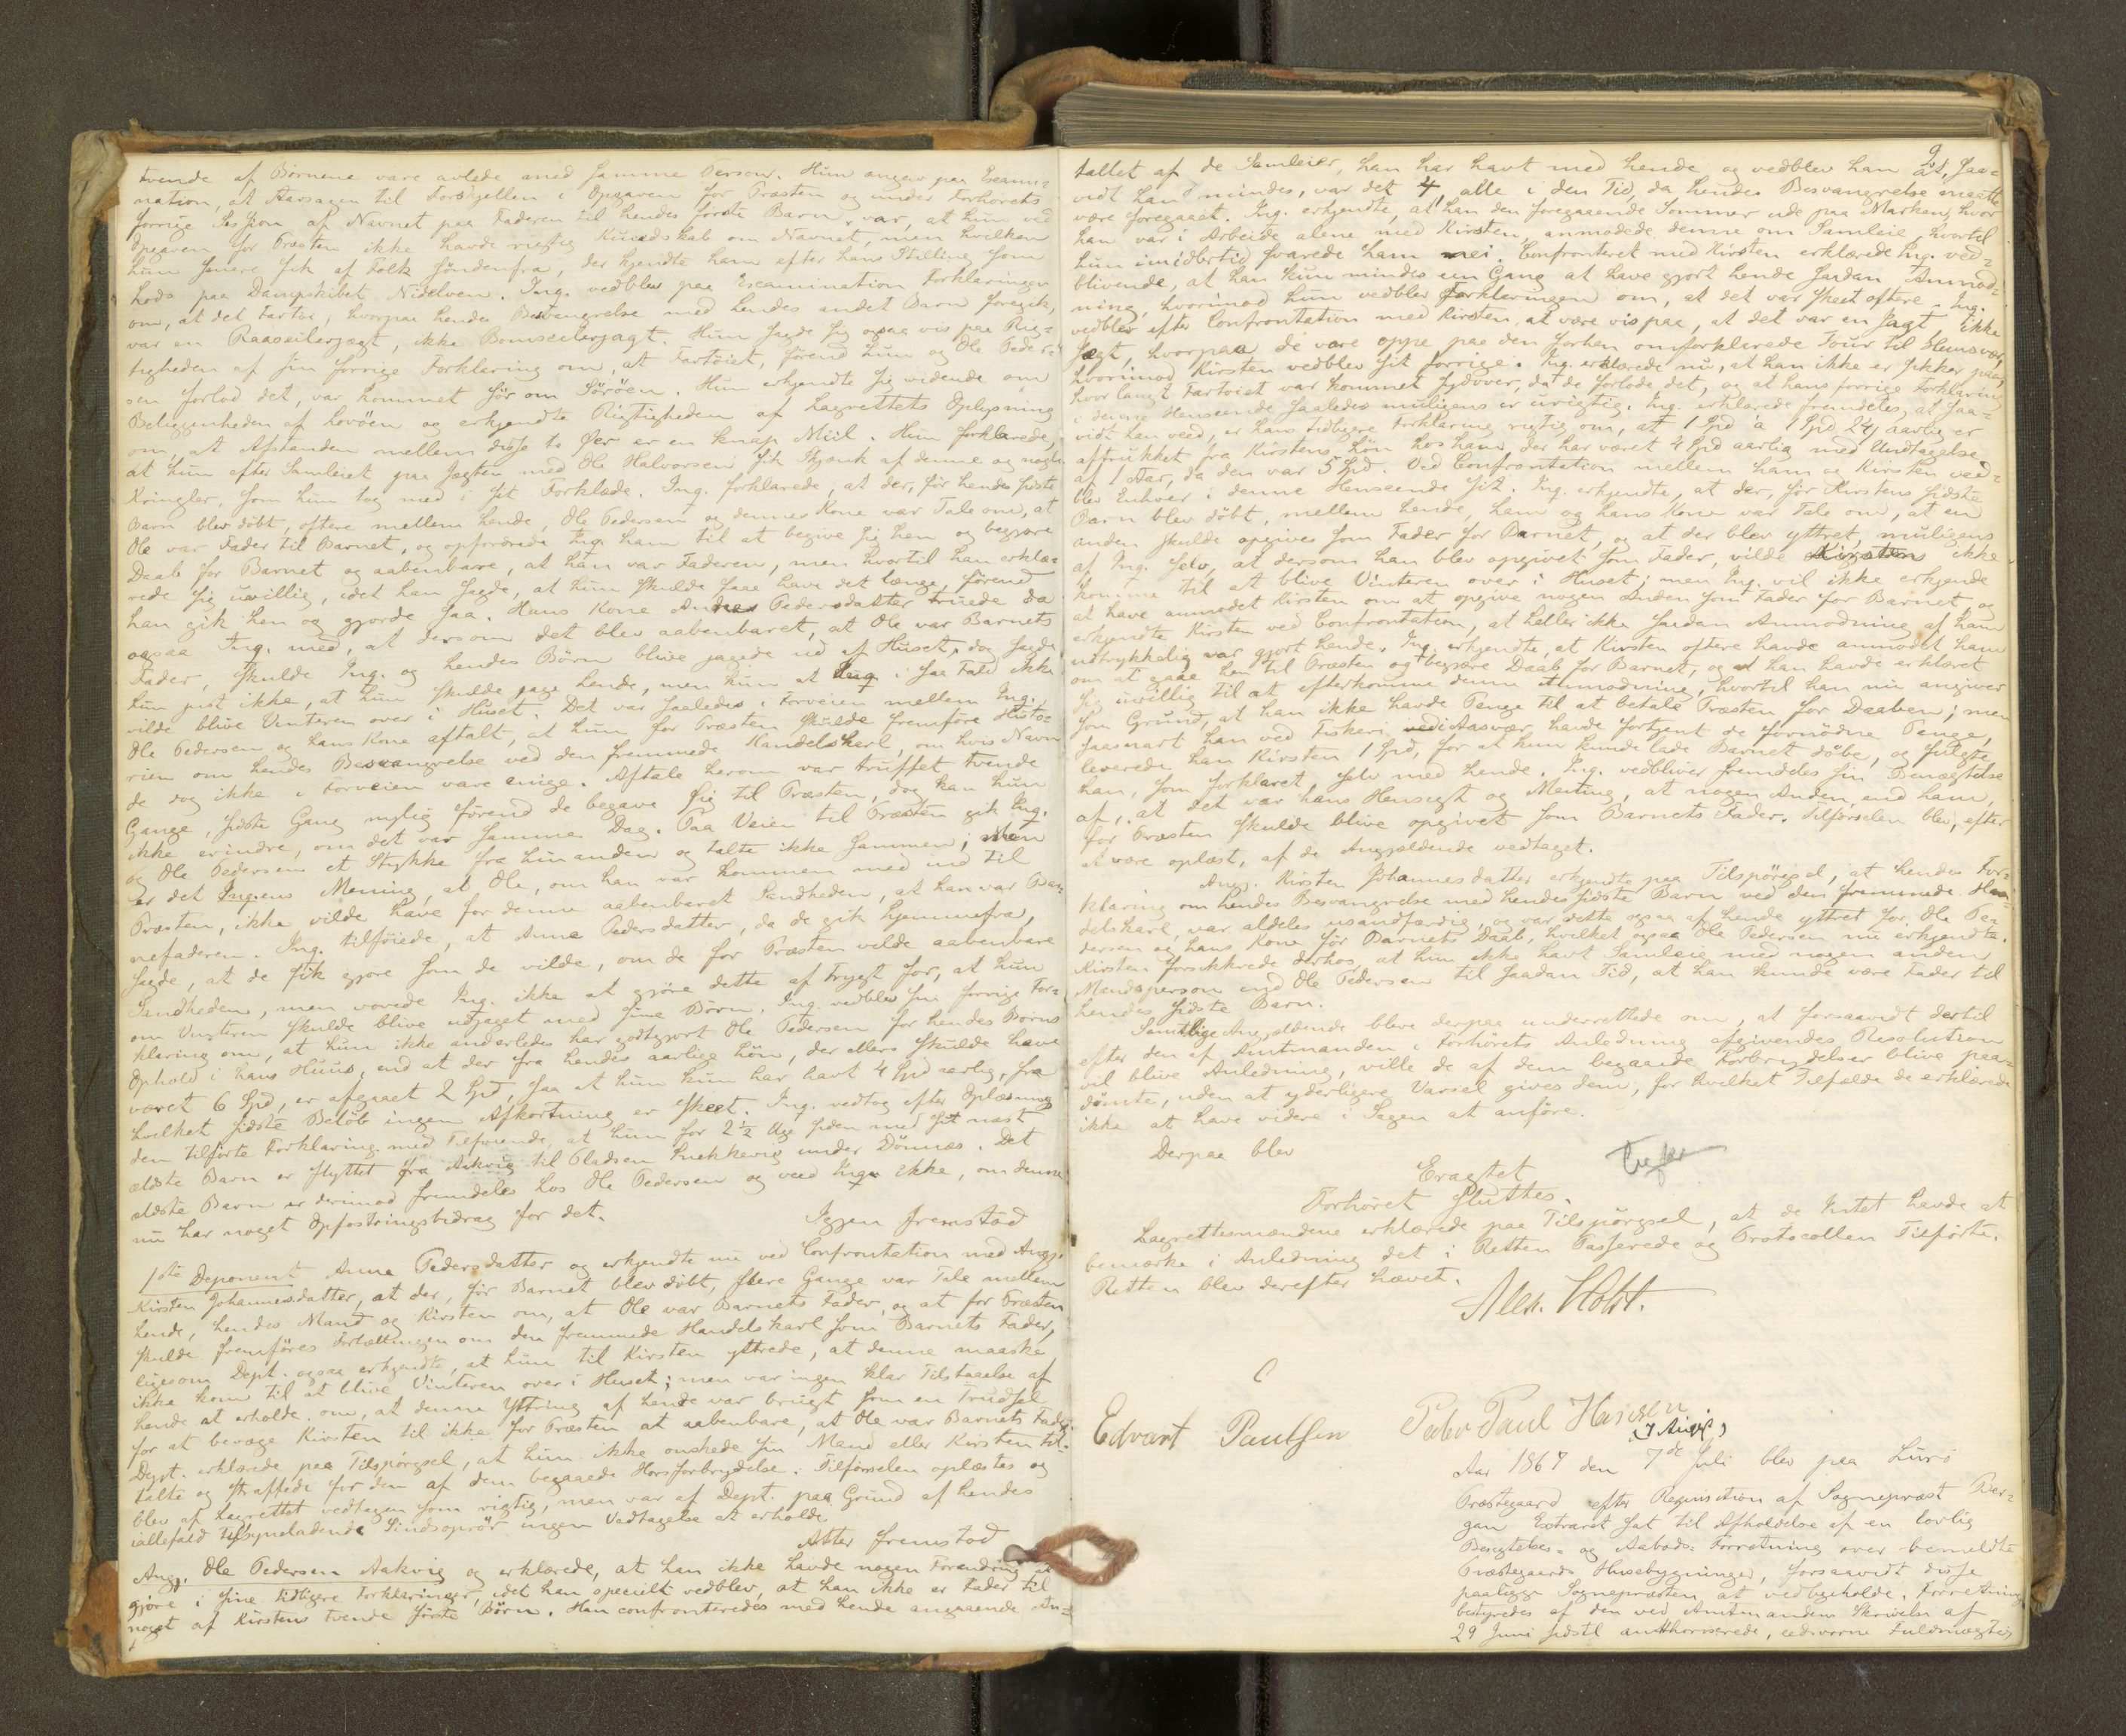 tvende af Børnene vare avlede med samme Person. Hun angav paa Exami-
nation, at Aarsagen til Forskjellen i Opgaven for Præsten og under Forhørets
forrige Session af Navnet paa Faderen til hendes første Barn, var, at hun ved
Opgaven for Præsten ikke havde rigtig Kundskab om Navnet, men hvilken
hun senere fik af Folk søndenfra, der kjendte ham efter hans Stilling som
Lods paa Dampskibet Nidelven. Ing. vedblev paa Examination Forklaringen
om, at det Fartøi, hvorpaa hendes Besvangrelse med hendes andet Barn foregik,
var en Raaseilerjagt, ikke Bomseilerjagt. Hun sagde sig ogsaa vis paa Rig-
tigheden af sin forrige Forklaring om, at Fartøiet, førend hun og Ole Peder-
sen forlod det, var kommet sør om Sørøen. Hun erkjendte sig vidende om
Beliggenheden af Lovøen og erkjendte Rigtigheden af Lagrettets Oplysning
om, at Afstanden mellem disse to Øer er en knap Miil. Hun forklarede,
at hun efter Samleiet paa Jagten med Ole Halvorsen fik Skjænk af denne og nogle
Kringler, som hun tog med i sit Forklæde. Ing. forklarede, at der, før hendes sidste
Barn blev døbt, oftere mellem hende, Ole Pedersen og dennes Kone var Tale om, at
Ole var Fader til Barnet, og opfordrede Ing. ham til at begive sig hen og begjære
Daab for Barnet og aabenbare, at han var Faderen, men hvortil han erklæ-
rede sig uvillig, idet han sagde, at hun skulde faae have det længe, førend
han gik hen og gjorde saa. Hans Kone Anne Pedersdatter truede da
ogsaa Ing. med, at dersom det blev aabenbaret, at Ole var Barnets
Fader, skulde Ing. og hendes Børn blive jagede ud af Huset, dog sagde
hun just ikke, at hun skulde jage hende, men kun at Ing. i saa Fald ikke
vilde blive Vinteren over i Huset. Det var saaledes i Forveien mellem Ing.
Ole Pedersen og hans Kone aftalt, at hun for Præsten skulde fremføre Histo-
rien om hendes Besvangrelse ved den fremmede Handelskarl, om hvis Navn
de dog ikke i Forveien vare enige. Aftale herom var truffet tvende
Gange, sidste Gang nylig førend de begave sig til Præsten, dog kan hun
ikke erindre, om det var samme Dag. Paa Veien til Præsten gik Ing.
og Ole Pedersen et Stykke fra hinanden og talte ikke sammen; men
er det Ingens Mening, at Ole, om han var kommen med ind til
Præsten, ikke vilde have for denne aabenbaret Sandheden, at han var Bar-
nefaderen. Ing. tilføiede, at Anne Pedersdatter, da de gik hjemmefra,
sagde, at de fik gjøre som de vilde, om de for Præsten vilde aabenbare
Sandheden, men vovede Ing. ikke at gjøre dette af Frygt for, at hun
om Vinteren skulde blive udjaget med sine Børn. Ing. vedblev sin forrige For-
klaring om, at hun ikke anderledes har godtgjort Ole Pedersen for hendes Børns
Ophold i hans Huus, end at der fra hendes aarlige Løn, der ellers skulde have
været 6 Spd, er afgaaet 2 Spd, saa at hun kun har havt 4 Spd aarlig, fra
hvilket sidste Beløb ingen Afkortning er skeet. Ing. vedtog efter Oplæsning
den tilførte Forklaring med Tilføiende, at hun for 2½ Uge siden med sit næst
ældste Barn er flyttet fra Aakvig til Pladsen Snekkevig under Dønnæs. Det
ældste Barn er derimod fremdeles hos Ole Pedersen og veed Ing. ikke, om denne
nu har noget Opfostringsbidrag for det.
Igjen fremstod
1ste Deponent Anne Pedersdatter og erkjendte nu ved Confrontation med Angj.
Kirsten Johannesdatter, at der, før Barnet blev døbt, flere Gange var Tale mellem
hende, hendes Mand og Kirsten om, at Ole var Barnets Fader, og at for Præsten
skulde fremføres Fortællingen om den fremmede Handelskarl som Barnets Fader,
ligesom Dept. ogsaa erkjendte, at hun til Kirsten yttrede, at denne maaske
ikke kom til at blive Vinteren over i Huset; men var ingen klar Tilstaaelse af
hende at erholde om, at denne Yttring af hende var brugt som en Trudsel
for at bevæge Kirsten til ikke for Præsten at aabenbare, at Ole var Barnets Fader.
Dept. erklærede paa Tilspørgsel, at hun ikke ønskede sin Mand eller Kirsten til-
talte og straffede for den af dem begaaede Horsforbrydelse. Tilførselen oplæstes og
blev af Lagrettet vedtagen som rigtig, men var af Dept. paa Grund af hendes
iallefald tilsyneladende Sindsoprør ingen Vedtagelse at erholde
Atter fremstod
Angj. Ole Pedersen Aakvig og erklærede, at han ikke havde nogen Forandring at
gjøre i sine tidligere Forklaringer, idet han specielt vedblev, at han ikke er Fader til
noget af Kirstens tvende første Børn. Han confronteredes med hende angaaende An-
2
tallet af de Samleier, han har havt med hende og vedblev han at, saa-
vidt han mindes, var det 4, alle i den Tid, da hendes Besvangrelse maatte
være foregaaet. Ing. erkjendte, at han den foregaaende Sommer ude paa Marken, hvor
han var i Arbeide alene med Kirsten, anmodede denne om Samleie, hvortil
hun imidlertid svarede ham nei. Confronteret med Kirsten erklærede Ing. ved-
blivende, at han kun mindes een Gang at have gjort hende saadan Anmod-
ning, hvorimod hun vedblev Forklaringen om, at det var skeet oftere. Ing.
vedblev efter Confrontation med Kirsten, at være vis paa, at det var en Jagt, ikke
Jægt, hvorpaa de vare oppe paa den forhen omforklarede Tour til Slensvær
hvorimod Kirsten vedblev sit forrige. Ing. erklærede nu, at han ikke er sikker paa,
hvor langt Fartøiet var kommet sydover, da de forlode det, og at hans forrige Forklaring
i denne Henseende saaledes muligens er urigtig. Ing. erklærede fremdeles, at saa-
vidt han veed, er hans tidligere Forklaring rigtig om, at 1 Spd a 1 Spd 24 ß aarlig er
aftrukket fra Kirstens Løn hos ham, der har været 4 Spd aarlig med Undtagelse
af 1 Aar, da den var 5 Spd. Ved Confrontation mellem ham og Kirsten ved-
blev Enhver i denne Henseende sit. Ing. erkjendte, at der, før Kirstens sidste
Barn blev døbt, mellem hende, ham og hans Kone var Tale om, at en
anden skulde opgives som Fader for Barnet, og at der blev yttret, muligens
af Ing. selv, at dersom han blev opgivet som Fader, vilde Kirsten ikke
komme til at blive Vinteren over i Huset; men Ing. vil ikke erkjende
at have anmodet Kirsten om at opgive nogen Anden som Fader for Barnet, og
erkjendte Kirsten ved Confrontation, at heller ikke saadan Anmodning af ham
udtrykkelig var gjort hende. Ing. erkjendte, at Kirsten oftere havde anmodet ham
om at gaae hen til Præsten og begjære Daab for Barnet, og at han havde erklæret
sig uvillig til at efterkomme denne Anmodning, hvortil han nu angiver
som Grund, at han ikke havde Penge til at betale Præsten for Daaben; men
saasnart han ved Fiskeri i Aasvær havde fortjent de fornødne Penge,
leverede han Kirsten 1 Spd, for at hun kunde lade Barnet døbe, og fulgte
han, som forklaret, selv med hende. Ing. vedbliver fremdeles sin Benægtelse
af, at det var hans Hensigt og Mening, at nogen Anden, end ham,
for Præsten skulde blive opgivet som Barnets Fader. Tilførselen blev, efter
at være oplæst, af de Angjældende vedtaget.
Angj. Kirsten Johannesdatter erkjendte paa Tilspørgsel, at hendes For-
klaring om hendes Besvangrelse med hendes sidste Barn ved den fremmede Han-
delskarl, var aldeles usandfærdig, og var dette ogsaa af hende yttret for Ole Pe-
dersen og hans Kone før Barnets Daab, hvilket ogsaa Ole Pedersen nu erkjendte.
Kirsten forsikkrede derhos, at hun ikke havt Samleie med nogen anden
Mandsperson end Ole Pedersen til saadan Tid, at han kunde være Fader til
hendes sidste Barn.
Samtlige Angjældende bleve derpaa underrettede om, at forsaavidt dertil
efter den af Amtmanden i Forhørets Anledning afgivendes Resolution
vil blive Anledning, ville de af dem begaaede Forbrydelser blive paa-
dømte, uden at yderligere Varsel gives dem, for hvilket Tilfælde de erklærede
ikke at have videre i Sagen at anføre.
Derpaa blev
Eragtet
Forhøret sluttes.
Lagrettesmændene erklærede paa Tilspørgsel, at de Intet havde at
bemærke i Anledning det i Retten Passerede og Protocollen Tilførte.
Retten blev derefter hævet.
Alex. Holst.
Edvart Paulsen Peder Paul Hansen
(7 Aug)
Aar 1867 den 7de Juli blev paa Lurø
Præstegaard efter Requisition af Sognepræst Ber-
gan Extraret sat til Afholdelse af en lovlig
Besigtelses- og Aabods-Forretning over bemeldte
Præstegaards Husebygninger, forsaavidt disse
paaligger Sognepræsten at vedligeholde. Forretningen
bestyredes af den ved Amtmandens Skrivelse af
29 Juni sidstl authoriserede, edsvorne Fuldmægtig